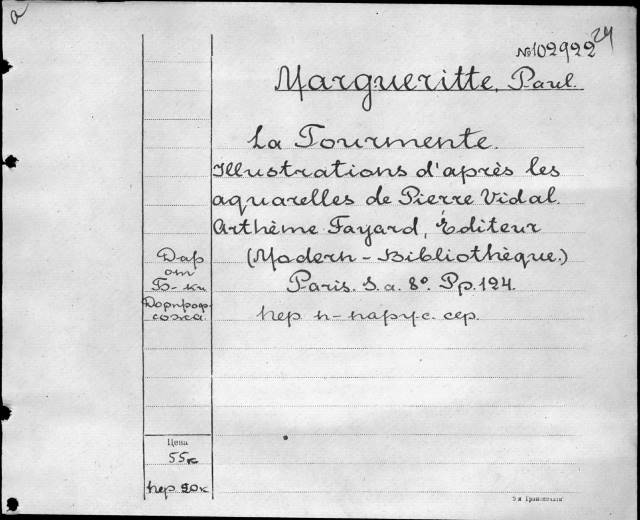 a
24
№102922
Margueritte, Paul.
La Tourmente.
Illustrations d'après les
aquarelles de Pierre Vidal.
Arthème Fayard, Éditeur
(Modern-Bibliothèque.)
Paris. S. a. 8°. Pp. 124.
пер п-парус. сер.
Дар
от
Б-ки
Дорпроф-
сожа
Цена
55к
пер 20к